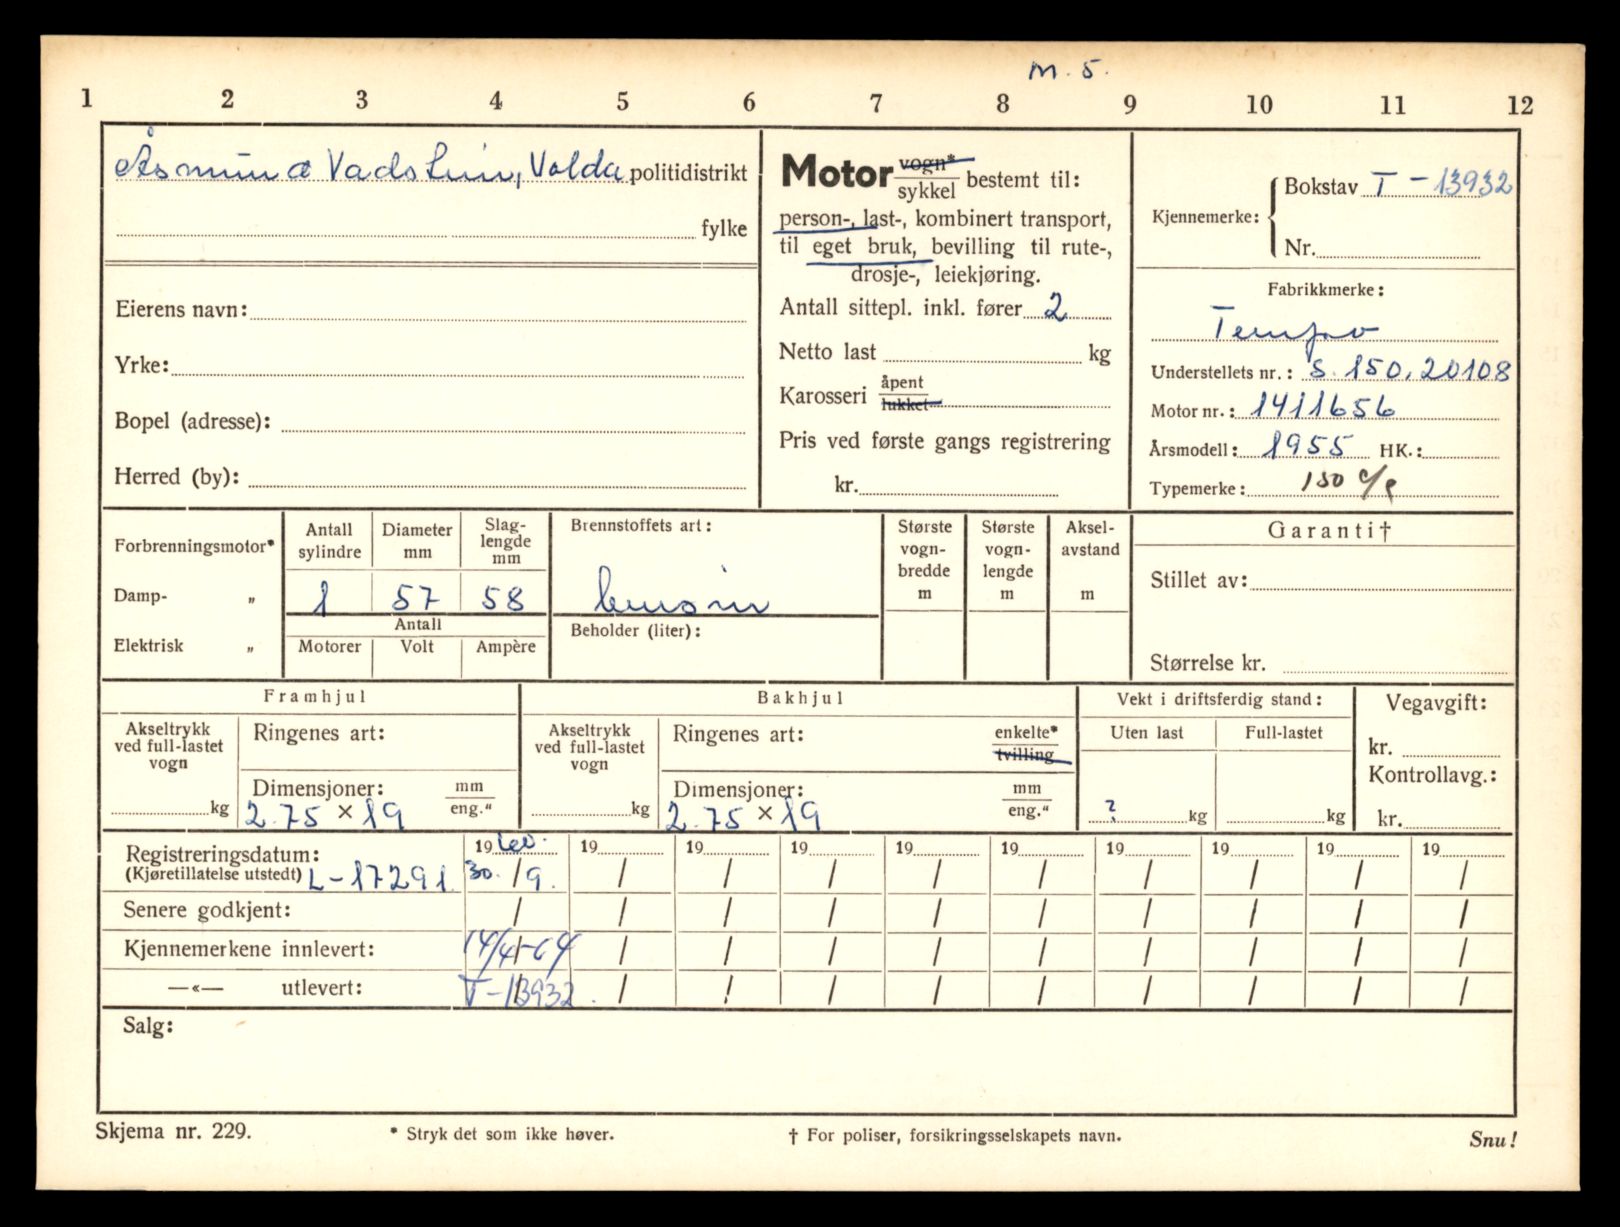 m. 5.
1 2 3 4 5 6 7 8 9 10 11 12
Volda politidistrikt
fylke
Eierens navn:
Yrke:
Bopel (adresse):
Herred (by):
Motor vogn*
sykkel bestemt til:
person-, last-, kombinert transport,
til eget bruk, bevilling til rute-,
drosje-, leiekjøring.
Antall sittepl. inkl. fører 2
Netto last kg
Karosseri åpent
lukket
Pris ved første gangs registrering
kr.
Kjennemerke: Bokstav T-13932
Nr.
Fabrikkmerke:
Tempo
Understellets nr.: S. 150. 20108
Motor nr.: 1411656
Årsmodell: 1955 HK.:
Typemerke: 150
Forbrenningsmotor*
Damp- „
Elektrisk „
Antall sylindre Diameter mm Slag-lengde mm
1 57 58
Antall
Motorer Volt Ampère
Brennstoffets art:
bensin
Beholder (liter):
Største vogn-bredde m
Største vogn-lengde m
Aksel-avstand m
Garanti†
Stillet av:
Størrelse kr.
Framhjul
Akseltrykk ved full-lastet vogn
kg
Ringenes art:
Dimensjoner: mm
eng."
2.75 × 19
Bakhjul
Akseltrykk ved full-lastet vogn
kg
Ringenes art: enkelte*
tvilling
Dimensjoner: mm
eng."
2.75 × 19
Vekt i driftsferdig stand:
Uten last Full-lastet
? kg kg
Vegavgift:
kr.
Kontrollavg.:
kr.
Registreringsdatum: 19 19 19 19 19 19 19 19 19 19
(Kjøretillatelse utstedt) L-17291 30. / 9. / / / / / / / / /
Senere godkjent: / / / / / / / / / /
Kjennemerkene innlevert: 14/4-64 / / / / / / / / /
—«— utlevert: T-13932. / / / / / / / / /
Salg:
Skjema nr. 229. * Stryk det som ikke høver. † For poliser, forsikringsselskapets navn. Snu!